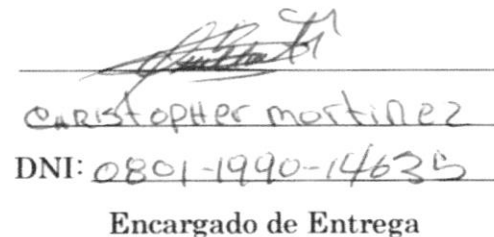 Christopher martinez
DNI: 0801-1990-14635
Encargado de Entrega